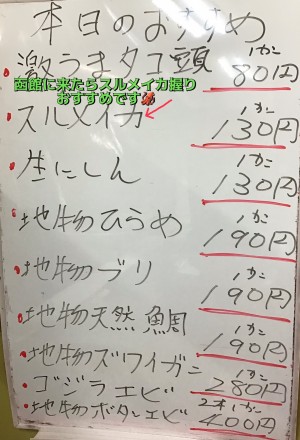 本日のおすすめ
激うまタコ頭 1カン 80円
函館に来たらスルメイカ握り
おすすめです
スルメイカ 1カン 130円
生にしん 1カン 130円
地物ひらめ 1カン 190円
地物ブリ 1カン 190円
地物天然鯛 1カン 190円
地物ズワイガニ 1カン 280円
ゴジラエビ
地物ボタンエビ 2本1カン 400円